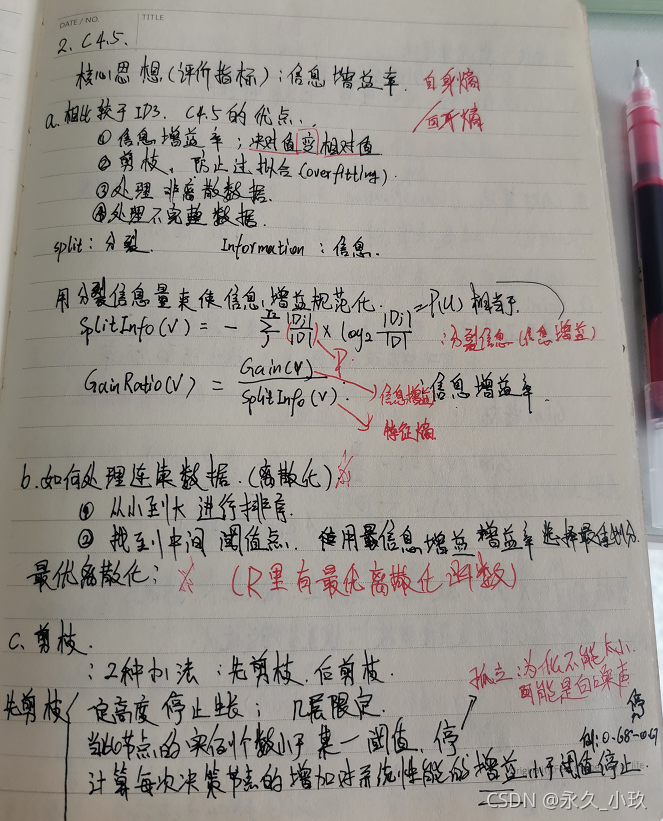 DATE / NO.
TITLE
2. C4.5.
核心思想(评价指标):信息增益率. 自身熵
/自身熵
a.相比较于ID3. C4.5的优点.
① 信息增益率;决对值变相对值
② 剪枝,防止过拟合(overfitting).
③ 处理非离散数据.
④ 处理不完整数据.
split:分裂. Information:信息.
用分裂信息量来使信息增益规范化. =P(U) 相当于
SplitInfo(V) = - Σ |Dj|/|D| × log2 |Dj|/|D| :分裂信息(信息增益)
P.
GainRatio(V) = Gain(V)/SplitInfo(V). :信息增益率.
信息增益
特征熵
b.如何处理连续数据.(离散化)
① 从小到大进行排序.
② 找到中间阈值点. 使用最信息增益 增益率选择最佳划分.
最优离散化: (R里有最优离散化函数)
c. 剪枝.
:2种办法:先剪枝.后剪枝.
孤立:为什么不能太小
可能是白噪声
先剪枝 定高度停止生长; 几层限定.
停
当此节点的实例个数小于某一阈值,停
例:0.68-0.67
计算每次决策节点的增加对系统性能的增益小于阈值停止.
CSDN @永久_小玖